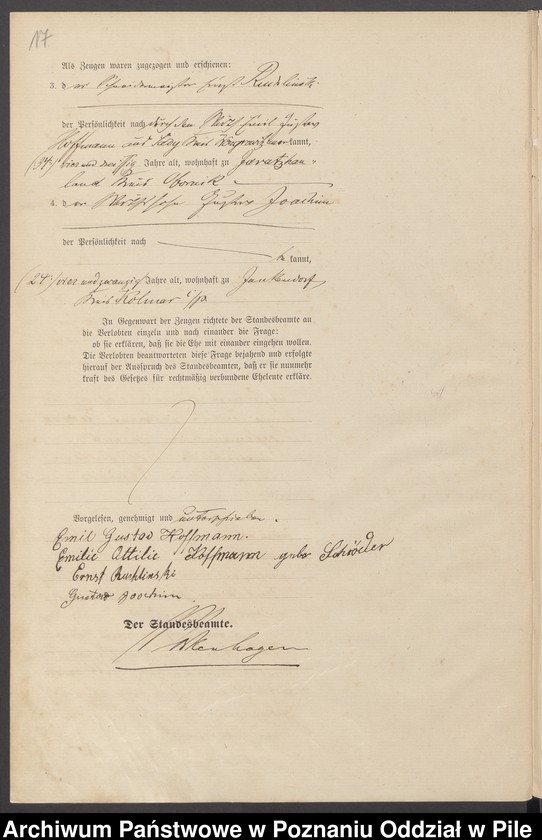 17
Als Zeugen waren zugezogen und erschienen:
3. der Schneidermeister Ernst
der Persönlichkeit nach durch den Wirth Emil Gustav
Hoffmann aus kannt,
(34) vier und dreißig Jahre alt, wohnhaft zu
land Kreis Obornik
4. der Wirthssohn Gustav Joachim
der Persönlichkeit nach
be kannt,
(24) vier und zwanzig Jahre alt, wohnhaft zu Jankendorf
Kreis Kolmar i/p
In Gegenwart der Zeugen richtete der Standesbeamte an
die Verlobten einzeln und nach einander die Frage:
ob sie erklären, daß sie die Ehe mit einander eingehen wollen.
Die Verlobten beantworteten diese Frage bejahend und erfolgte
hierauf der Ausspruch des Standesbeamten, daß er sie nunmehr
kraft des Gesetzes für rechtmäßig verbundene Eheleute erkläre.
Vorgelesen, genehmigt und unterschrieben.
Emil Gustav Hoffmann.
Emilie Ottilie Hoffmann gebor Schröder
Ernst
Gustav Joachim.
Der Standesbeamte.
Archiwum Państwowe w Poznaniu Oddział w Pile